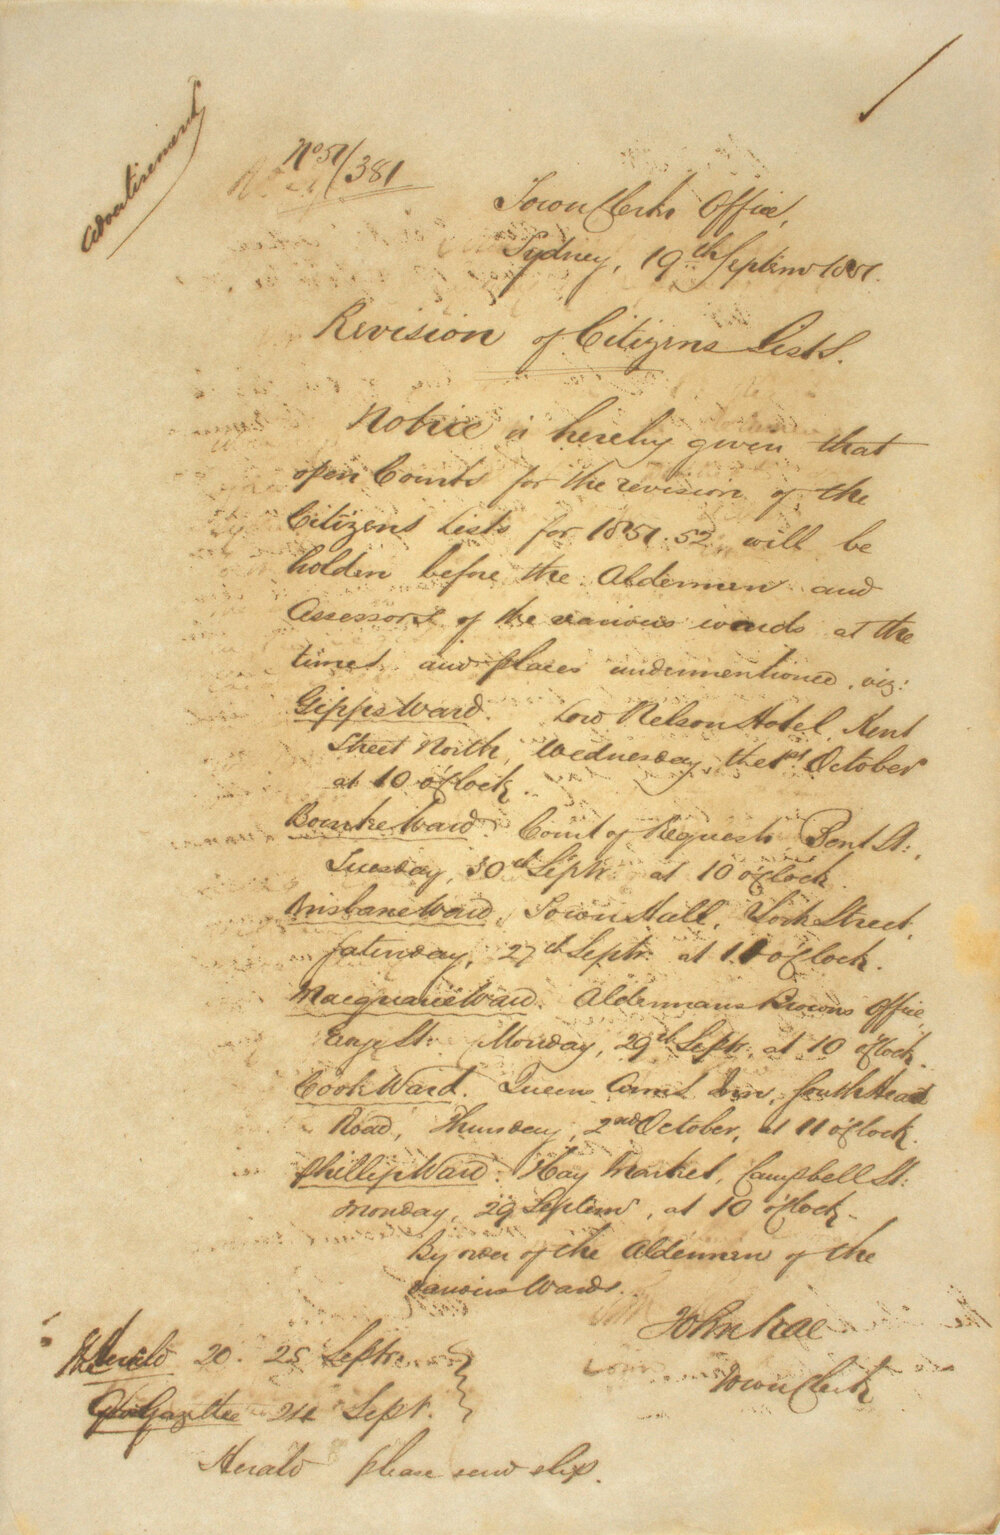 Advertisement
No 51/381
Town Clerks Office,
Sydney, 19th Septemr 1851.
Revision of Citizens Lists.
Notice is hereby given that
open Courts for the revision of the
Citizens Lists for 1851.52 will be
holden before the Aldermen and
Assessors of the various wards at the
times and places undermentioned, viz:
Gipps Ward. Lord Nelson Hotel, Kent
Street North, Wednesday, the 1st October
at 10 o'Clock.
Bourke Ward. Court of Requests, Bent St.,
Tuesday, 30th Septr. at 10 o'Clock.
Brisbane Ward, Town Hall, York Street,
Saturday, 27th Septr. at 11 o'Clock.
Macquarie Ward. Aldermans Browns Office,
St. Monday, 29th Septr. at 10 o'Clock.
Cook Ward. Queens Arms Inn, South Head
Road, Thursday, 2nd October, at 11 o'Clock.
Phillip Ward. Hay Market, Campbell St.
Monday, 29 Septemr, at 10 o'Clock.
By order of the Aldermen of the
various Wards.
John Rae
Town Clerk
Herald 20. 25 Septr.
Gazette 24 Sept.
Herald please send slip.